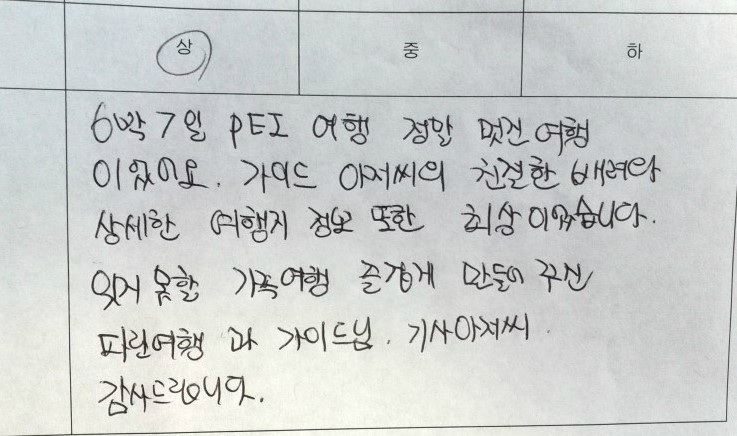 상 중 하
6박7일 PEI 여행 정말 멋진 여행
이었어요. 가이드 아저씨의 친절한 배려와
상세한 여행지 정보 또한 최상이었습니다.
잊지 못할 가족여행 즐겁게 만들어 주신
파란여행 과 가이드님, 기사아저씨
감사드립니다.